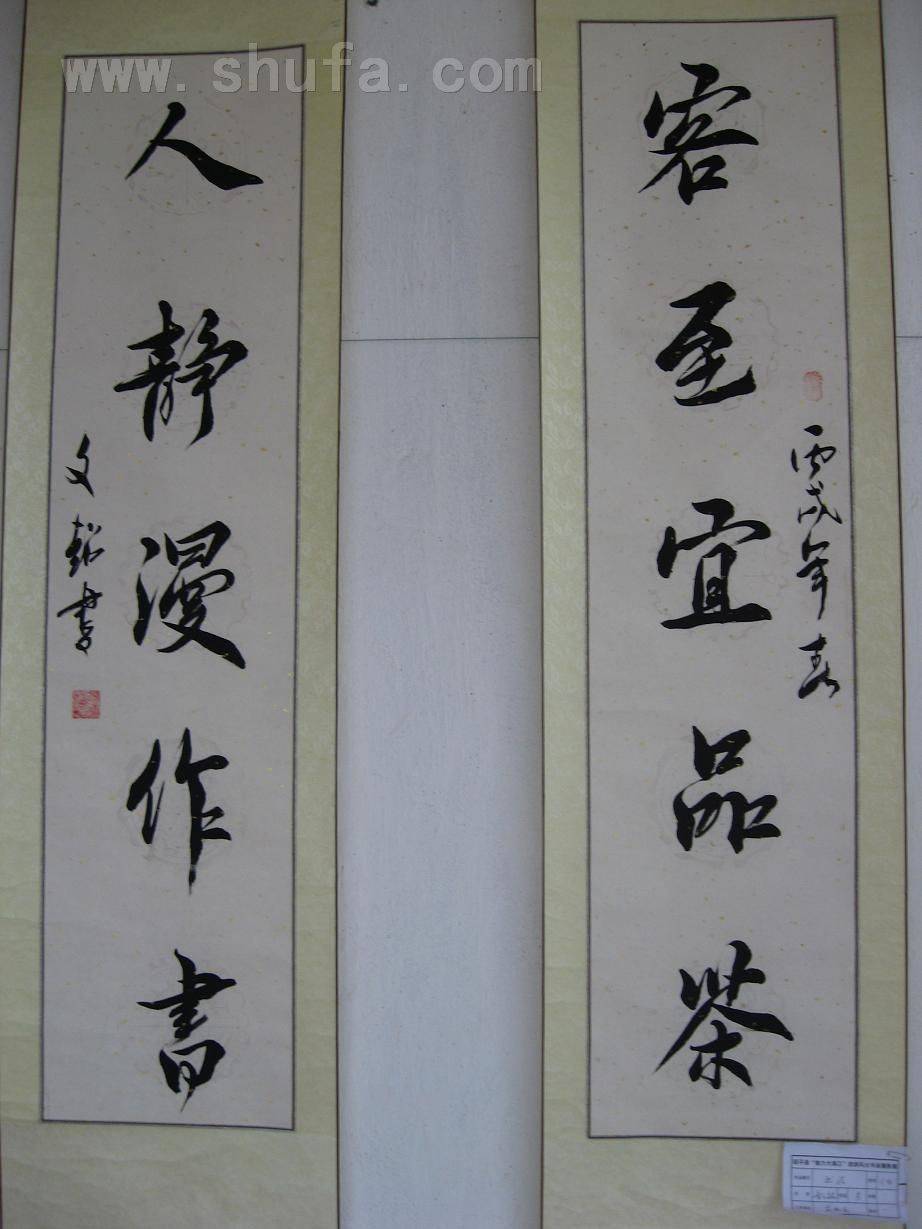 www.shufa.com
客至宜品茶
丙戌年春
人静漫作書
文
書